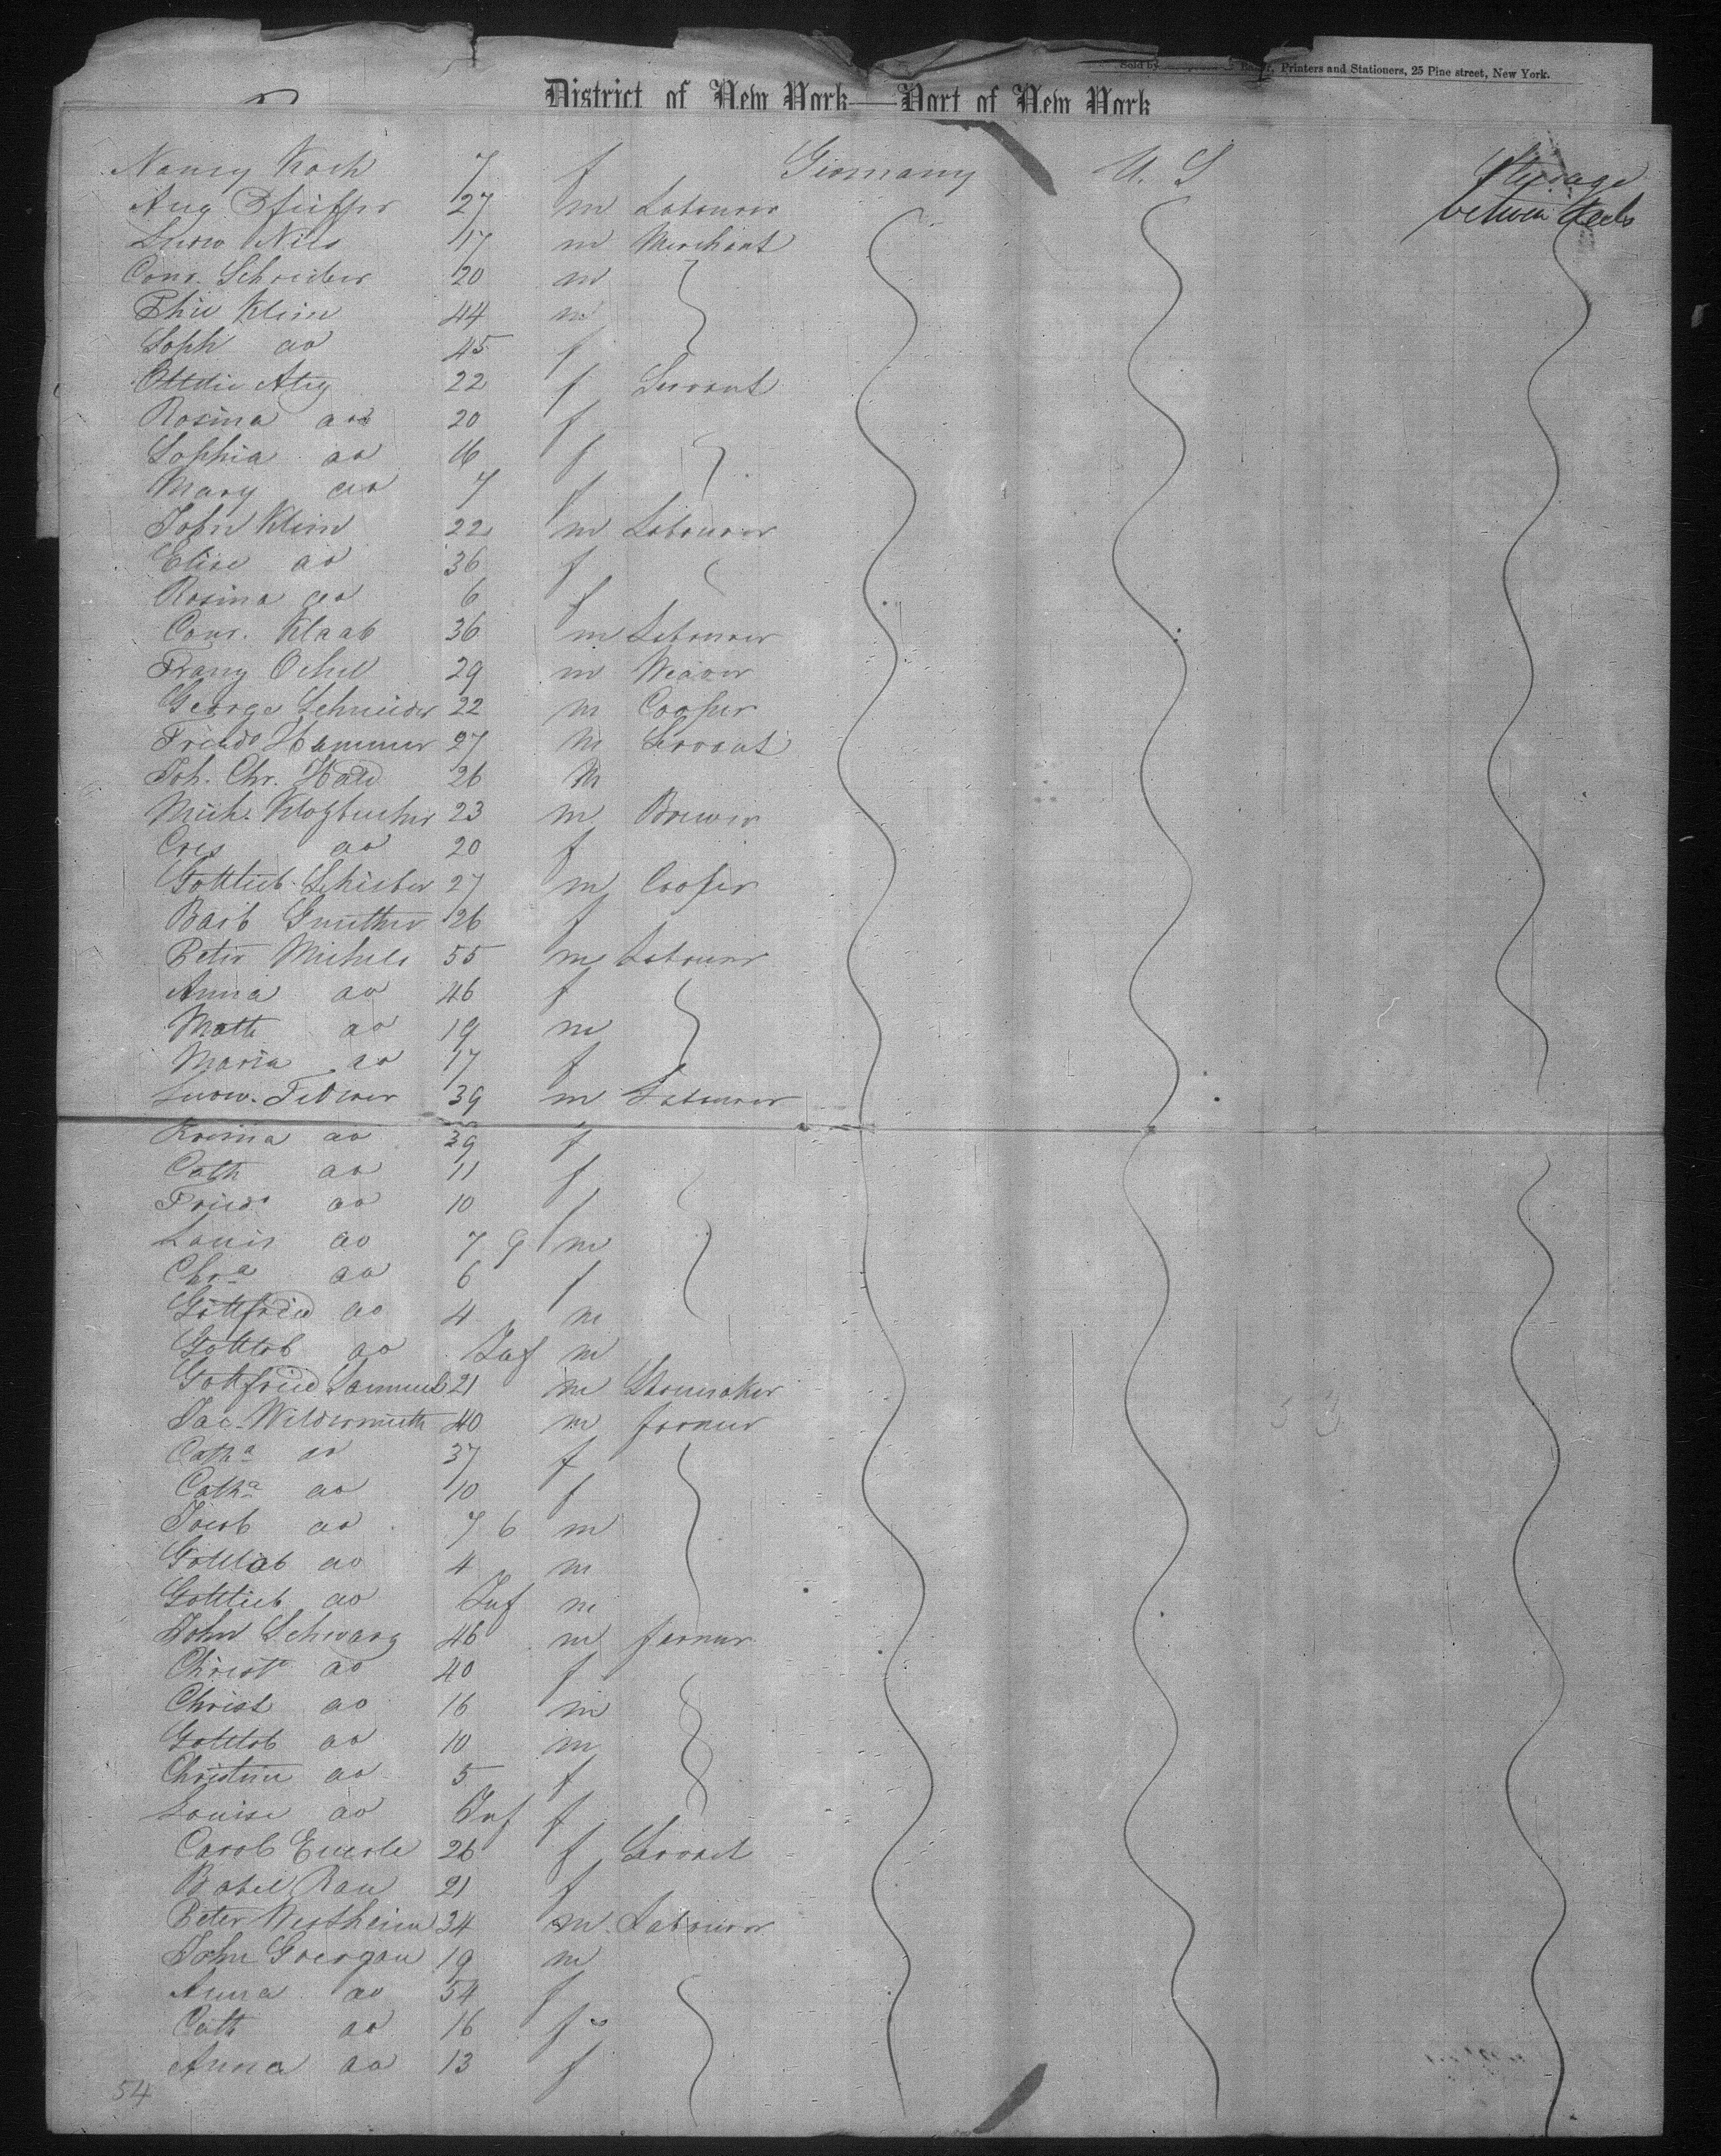 Printers and Stationers, 25 Pine street, New York.
District of New York—Port of New York
Nancy Koch 7 f Germany U. S Steerage
Aug Pfeiffer 27 m Labourer between decks
Ludw Nils 17 m Merchant
Conr. Schreiber 20 m
Phil Klein 44 m
Soph do 45 f
22 f Servant
Rosina do 20 f
Sophia do 16 f
Mary do 7 f
John Klein 22 m Labourer
Elise do 36 f
Rosina do 6 f
Conr. Klaab 36 m Labourer
Franz 29 m Weaver
George Schneider 22 m Cooper
Friedr Hammer 27 m Servant
Joh. Chr. 26 m
Mich. Klozbucher 23 m Brewer
Cres do 20 f
Gottlieb Schieber 27 m Cooper
Barb Gunther 26 f
Peter Michels 55 m Labourer
Anna do 46 f
Math do 19 m
Maria do 17 f
Ludw. 39 m Labourer
Rosina do 39 f
Cath do 11 f
Friedr do 10 f
Louis do 7 9 m
Chra do 6 f
Gottfried do 4 m
Gottlob do Inf m
Gottfried Sammet 21 m Shoemaker
Jac. Wildermuth 40 m farmer
Catha do 37 f
Catha do 10 f
Jacob do 7 6 m
Gottlob do 4 m
Gottlieb do Inf m
John Schwarz 46 m farmer
Christe do 40 f
Christ do 16 m
Gottlob do 10 m
Christine do 5 f
Louise do Inf f
Carol Eberle 26 f Servant
Babel Rau 21 f
Peter Westheim 34 m Labourer
John Goergan 19 m
Anna do 54 f
Cath do 16 f
Anna do 13 f
54